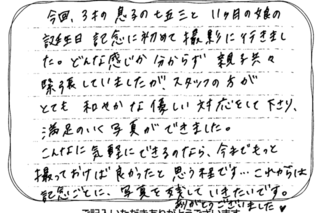 今回、3才の息子の七五三と 11ヶ月の娘の
誕生日記念に初めて撮影に行きまし
た。どんな感じか分からず 親子共々
緊張していましたが、スタッフの方が
とても 和やかな優しい対応をして下さり、
満足のいく写真ができました。
こんなに気軽にできるのなら、今までもっと
撮っておけば良かったと思う程です… これからは
記念ごとに、写真を残していきたいです。
ありがとうございました♥
ご記入いただきありがとうございます